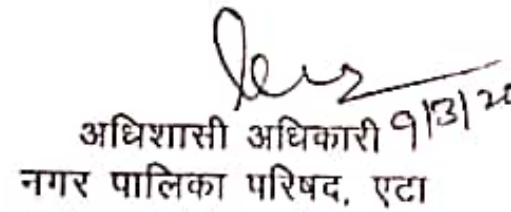 अधिशासी अधिकारी 9/3/20
नगर पालिका परिषद, एटा